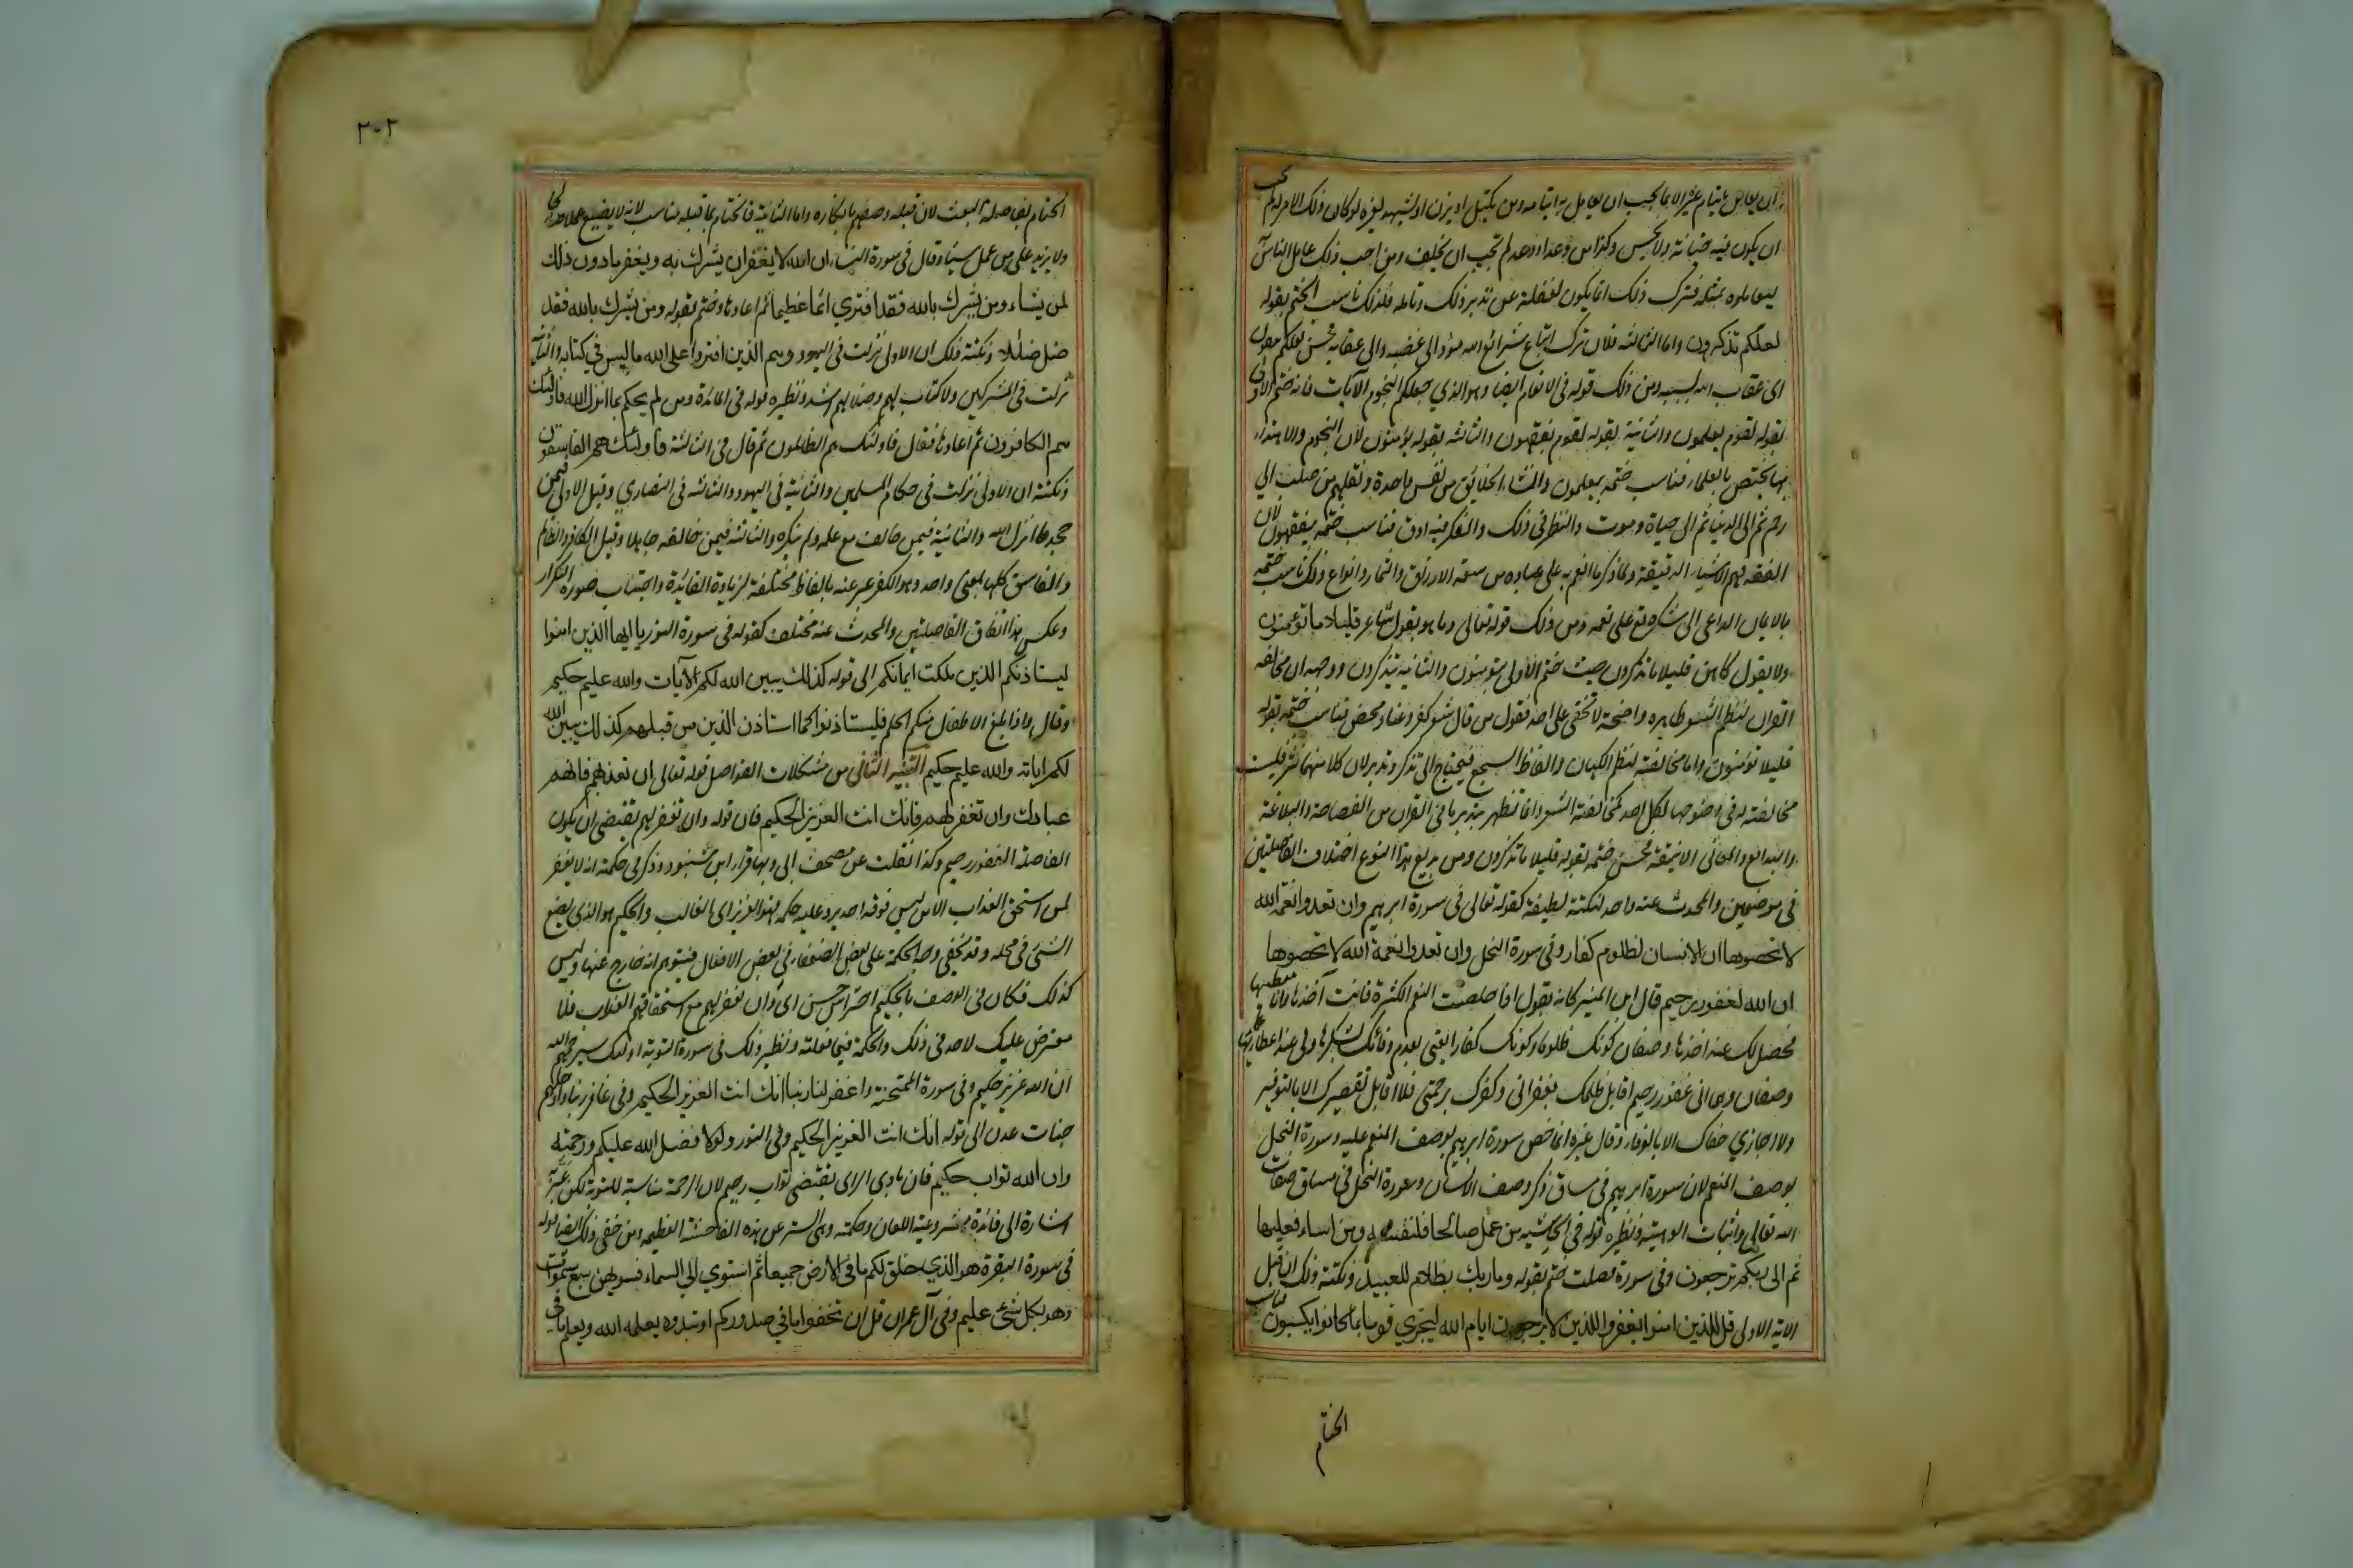 ان يعامل ايتام غيره الا بما يحب ان يعامل به ايتامه ومن يكيل او يزن او يشهد لغيره لو كان ذلك الامر له لم يحب
ان يكون فيه خيانة ولا بخس وكذا من وعد او وعد لم يحب ان يخلف ومن احب ذلك عامل الناس به
ليعاملوه بمثله فترك ذلك انما يكون لغفلة عن تدبر ذلك وتامله فلذلك ناسب الختم بقوله
لعلكم تذكرون واما الثالثة فلان ترك اتباع شرائع الله مؤد الى غضبه والى عقابه فحسن لعلكم تتقون
اى عقاب الله بسببه ومن ذلك قوله فى الانعام ايضا وهو الذي جعل لكم النجوم الآيات فانه ختم الاولى
بقوله لقوم يعلمون والثانية بقوله لقوم يفقهون والثالثة بقوله يؤمنون لان النجوم والاهتداء
بها يختص بالعلماء فناسب ختمه بيعلمون وانشاء الخلائق من نفس واحدة ونقلهم من صلب الي
رحم ثم الى الدنيا ثم الى حياة وموت والنظر فى ذلك والفكر فيه ادق فناسب ختمه بيفقهون لان
الفقه فهم الاشياء الدقيقة ولما ذكر ما انعم به على عباده من سعة الارزاق والثمار وانواع ذلك ناسب ختمه
بالايمان الداعى الى شكره تع على نعمه ومن ذلك قوله تعالى وما هو بقول شاعر قليلا ما تؤمنون
ولا بقول كاهن قليلا ما تذكرون حيث ختم الاولى بتؤمنون والثانية بتذكرون ووجهه ان مخالفه
القران لنظم الشعر ظاهره واضحة لا تخفى على احد فقول من قال شعر كفر وعناد محض فناسب ختمه بقوله
قليلا تؤمنون واما مخالفته لنظم الكهان والفاظ السجع فيحتاج الى تذكر وتدبر لان كلا منهما نثر فليست
مخالفته له فى وضوحها لكل احد كمخالفته الشعر وانما تظهر بتدبر ما فى القران من الفصاحة والبلاغة
والبدائع والمعانى الانيقة فحسن ختمه بقوله قليلا ما تذكرون ومن بديع هذا النوع اختلاف الفاصلتين
فى موضعين والمحدث عنه واحد لنكتة لطيفة كقوله تعالى فى سورة ابرهيم وان تعدوا نعمة الله
لا تحصوها ان الانسان لظلوم كفار وفى سورة النحل وان تعدوا نعمة الله لا تحصوها
ان الله لغفور رحيم قال ابن المنير كانه يقول اذا حصلت النعم الكثيرة فانت آخذها وانا معطيها
فحصل لك عند اخذها وصفان كونك ظلوما وكونك كفارا يعنى لعدم وفائك بشكرها ولى عند اعطائها
وصفان وهما انى غفور رحيم اقابل ظلمك بغفرانى وكفرك برحمتى فلا اقابل تقصيرك الا بالتوفير
ولا اجازي جفاك الا بالوفاء وقال غيره انما خص سورة ابرهيم بوصف المنعم عليه وسورة النحل
بوصف المنعم لان سورة ابرهيم فى مساق ذكر وصف الانسان وسورة النحل فى مساق صفات
الله تعالى واثبات الوهيته ونظيره قوله فى الجاثيه من عمل صالحا فلنفسه ومن اساء فعليها
ثم الى ربكم ترجعون وفى سورة فصلت ختم بقوله وما ربك بظلام للعبيد ونكتته ذلك ان قبل
الاية الاولى قل للذين امنوا يغفروا للذين لا يرجون ايام الله ليجزي قوما بما كانوا يكسبون فناسب
الختام
٣٠٢
الختام بفاصلة البعث لان قبله وصفهم بانكاره واما الثانية فالختام بما قبله مناسب لانه لا يضيع عملا صالحا
ولا يزيد على من عمل سيئا وقال فى سورة النساء ان الله لا يغفر ان يشرك به ويغفر ما دون ذلك
لمن يشاء ومن يشرك بالله فقد افترى اثما عظيما ثم اعادها وختم بقوله ومن يشرك بالله فقد
ضل ضللا ونكتة ذلك ان الاولى نزلت فى اليهود وهم الذين افتروا على الله ما ليس فى كتابه والثانية
نزلت فى المشركين ولا كتاب لهم وضلالهم اشد ونظيره قوله فى المائدة ومن لم يحكم بما انزل الله فاولئك
هم الكافرون ثم اعادها فقال فاولئك هم الظالمون ثم قال فى الثالثة فاولئك هم الفاسقون
ونكتته ان الاولى نزلت فى حكام المسلمين والثانية فى اليهود والثالثه فى النصاري وقيل الاولى فيمن
جحد ما انزل الله والثانية فيمن خالف مع علمه ولم ينكره والثالثه فيمن خالفه جاهلا وقيل الكافر والظالم
والفاسق كلها بمعنى واحد وهو الكفر عبر عنه بالفاظ مختلفة لزيادة الفائدة واجتناب صورة التكرار
وعكس هذا اتفاق الفاصلتين والمحدث عنه مختلف كقوله فى سورة النور يا ايها الذين امنوا
ليستاذنكم الذين ملكت ايمانكم الى قوله كذلك يبين الله لكم الآيات والله عليم حكيم
وقال واذا بلغ الاطفال منكم الحلم فليستاذنوا كما استاذن الذين من قبلهم كذلك يبين الله
لكم اياته والله عليم حكيم التنبيه الثانى من مشكلات الفواصل قوله تعالى ان تعذبهم فانهم
عبادك وان تغفر لهم فانك انت العزيز الحكيم فان قوله وان تغفر لهم تقتضى ان يكون
الفاصلة الغفور رحيم وكذا نقلت عن مصحف ابى وبها قرا ابن شنبود وذكر فى حكمته انه لا يغفر
لمن استحق العذاب الا من ليس فوقه احد يرد عليه حكمه فهو العزيز اى الغالب والحكيم هو الذى يضع
الشئ فى محله وقد يخفى وجه الحكمة على بعض الضعفاء فى بعض الافعال فيتوهم انه خارج عنها وليس
كذلك فكان فى الوصف بالحكيم احتراس حسن اى وان تغفر لهم مع استحقاقهم العذاب فلا
معترض عليك لاحد فى ذلك والحكمة فيما فعلته ونظير ذلك فى سورة التوبة اولئك سيرحمهم الله
ان الله عزيز حكيم وفى سورة الممتحنة واغفر لنا ربنا انك انت العزيز الحكيم وفى غافر ربنا وادخلهم
جنات عدن الى قوله انك انت العزيز الحكيم وفى النور ولولا فضل الله عليكم ورحمته
وان الله تواب حكيم فان بادى الراى يقتضى تواب رحيم لان الرحمة مناسبة للتوبة لكن عبر به
اشارة الى فائدة مشروعية اللعان وحكمته وهى الستر عن هذه الفاحشة العظيمه ومن خفى ذلك ايضا قوله
فى سورة البقرة هو الذي خلق لكم ما فى الارض جميعا ثم استوي الى السماء فسويهن سبع سموات
وهو بكل شئ عليم وفى آل عمران قل ان تخفوا ما في صدوركم او تبدوه يعلمه الله ويعلم ما فى